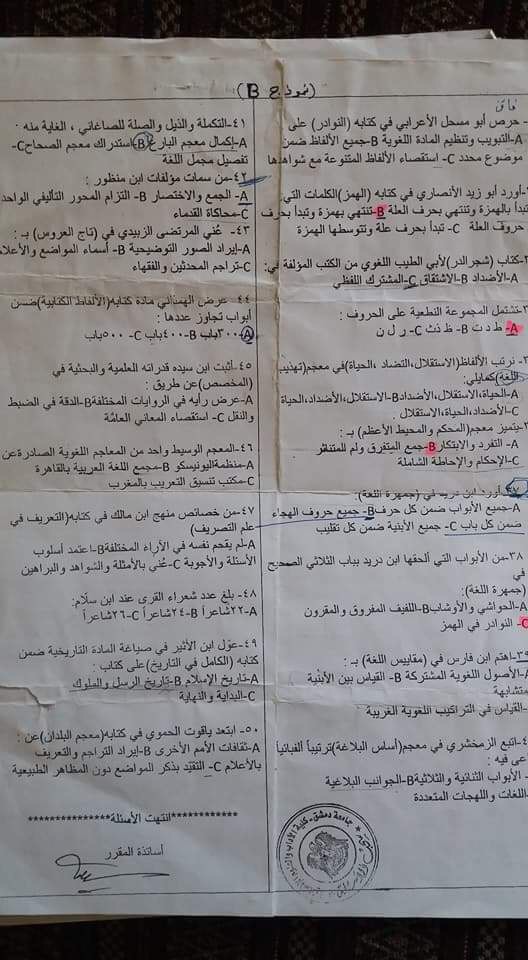 (نموذج B)
- حرص أبو مسحل الأعرابي في كتابه (النوادر) على
A-التبويب وتنظيم المادة اللغوية B-جميع الألفاظ ضمن
موضوع محدد C- استقصاء الألفاظ المتنوعة مع شواهدها
أورد أبو زيد الأنصاري في كتابه (الهمز) الكلمات التي:
تبدأ بالهمزة وتنتهي بحرف العلة B-تنتهي بهمزة وتبدأ بحرف
حروف العلة C- تبدأ بحرف علة وتتوسطها الهمزة
كتاب (شجر الدر) لأبي الطيب اللغوي من الكتب المؤلفة في:
A-الأضداد B-الاشتقاق C-المشترك اللفظي
تشتمل المجموعة النطعية على الحروف :
A- ط د ت B- ظ ذ ث C- ر ل ن
نرتب الألفاظ (الاستقلال، التضاد ،الحياة) في معجم (تهذيب
اللغة) كمايلي:
A-الحياة،الاستقلال،الأضداد B-الاستقلال،الأضداد،الحياة
C-الأضداد،الحياة،الاستقلال:
يتميز معجم (المحكم والمحيط الأعظم) بـ :
A- التفرد والابتكار B-جمع المتفرق ولم للمتناثر
C-الإحكام والإحاطة الشاملة
٣٧-أورد ابن دريد في (جمهرة اللغة):
A-جميع الأبواب ضمن كل حرف B- جميع حروف الهجاء
ضمن كل باب C- جميع الأبنية ضمن كل تقليب
٣٨-من الأبواب التي ألحقها ابن دريد بباب الثلاثي الصحيح
في
(جمهرة اللغة):
A-الحواشي والأوشاب B-اللفيف المفروق والمقرون
C- النوادر في الهمز
٣٩-اهتم ابن فارس في (مقاييس اللغة) بـ :
A-الأصول اللغوية المشتركة B- القياس بين الأبنية
متشابهة
-القياس في التراكيب اللغوية الغريبة
اتبع الزمخشري في معجم (أساس البلاغة) ترتيباً ألفبائياً
عى فيه :
- الأبواب الثنائية والثلاثية B-الجوانب البلاغية
اللغات واللهجات المتعددة
٤١-التكملة والذيل والصلة للصاغاني، الغاية منه
A-إكمال معجم البارع B-استدراك معجم الصحاح C-
تفصيل مجمل اللغة
٤٢-من سمات مؤلفات ابن منظور :
A- الجمع والاختصار B- التزام المحور التأليفي الواحد
C-محاكاة القدماء
٤٣- عُني المرتضى الزبيدي في (تاج العروس) بـ:
A-إيراد الصور التوضيحية B- أسماء المواضع والأعلام
C-تراجم المحدثين والفقهاء
٤٤- عرض الهمذاني مادة كتابه (الألفاظ الكتابية) ضمن
أبواب تجاوز عددها:
A-٣٠٠باب B-٤٠٠باب C-٥٠٠باب
٤٥- أثبت ابن سيده قدراته العلمية والبحثية في
(المخصص) عن طريق :
A-عرض رأيه في الروايات المختلفة B-الدقة في الضبط
والنقل C- استقصاء المعاني العامّة
٤٦- المعجم الوسيط واحد من المعاجم اللغوية الصادرة عن
A-منظمة اليونيسكو B-مجمع اللغة العربية بالقاهرة
C-مكتب تنسيق التعريب بالمغرب
٤٧-من خصائص منهج ابن مالك في كتابه (التعريف في
علم التصريف)
A-لم يقحم نفسه في الآراء المختلفة B-اعتمد أسلوب
الأسئلة والأجوبة C-عُني بالأمثلة والشواهد والبراهين
٤٨- بلغ عدد شعراء القرى عند ابن سلّام:
A-٢٢شاعراً B-٢٤شاعراً C-٢٦شاعراً
٤٩-عوّل ابن الأثير في صياغة المادة التاريخية ضمن
كتابه (الكامل في التاريخ) على كتاب :
A-تاريخ الإسلام B-تاريخ الرسل والملوك
C-البداية والنهاية
٥٠- ابتعد ياقوت الحموي في كتابه (معجم البلدان) عن :
A-ثقافات الأمم الأخرى B-إيراد التراجم والتعريف
بالأعلام C- التقيّد بذكر المواضع دون المظاهر الطبيعية
************انتهت الأسئلة***************
أساتذة المقرر
جامعة دمشق - كلية الآداب